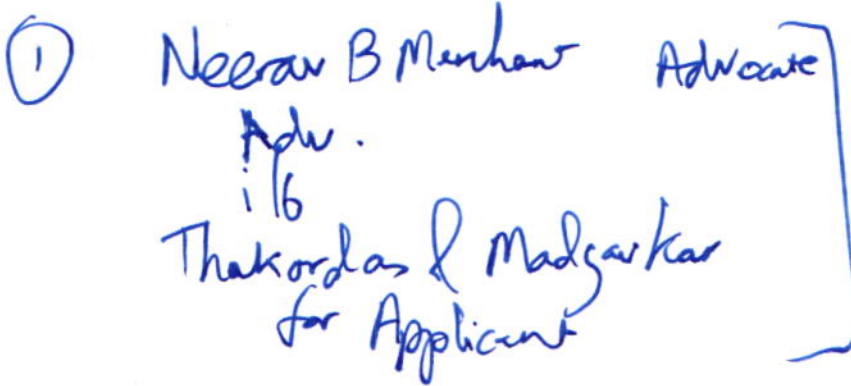 ① Neerav B Merchant Advocate
Adv.
i/b
Thakordas & Madgavkar
for Applicant